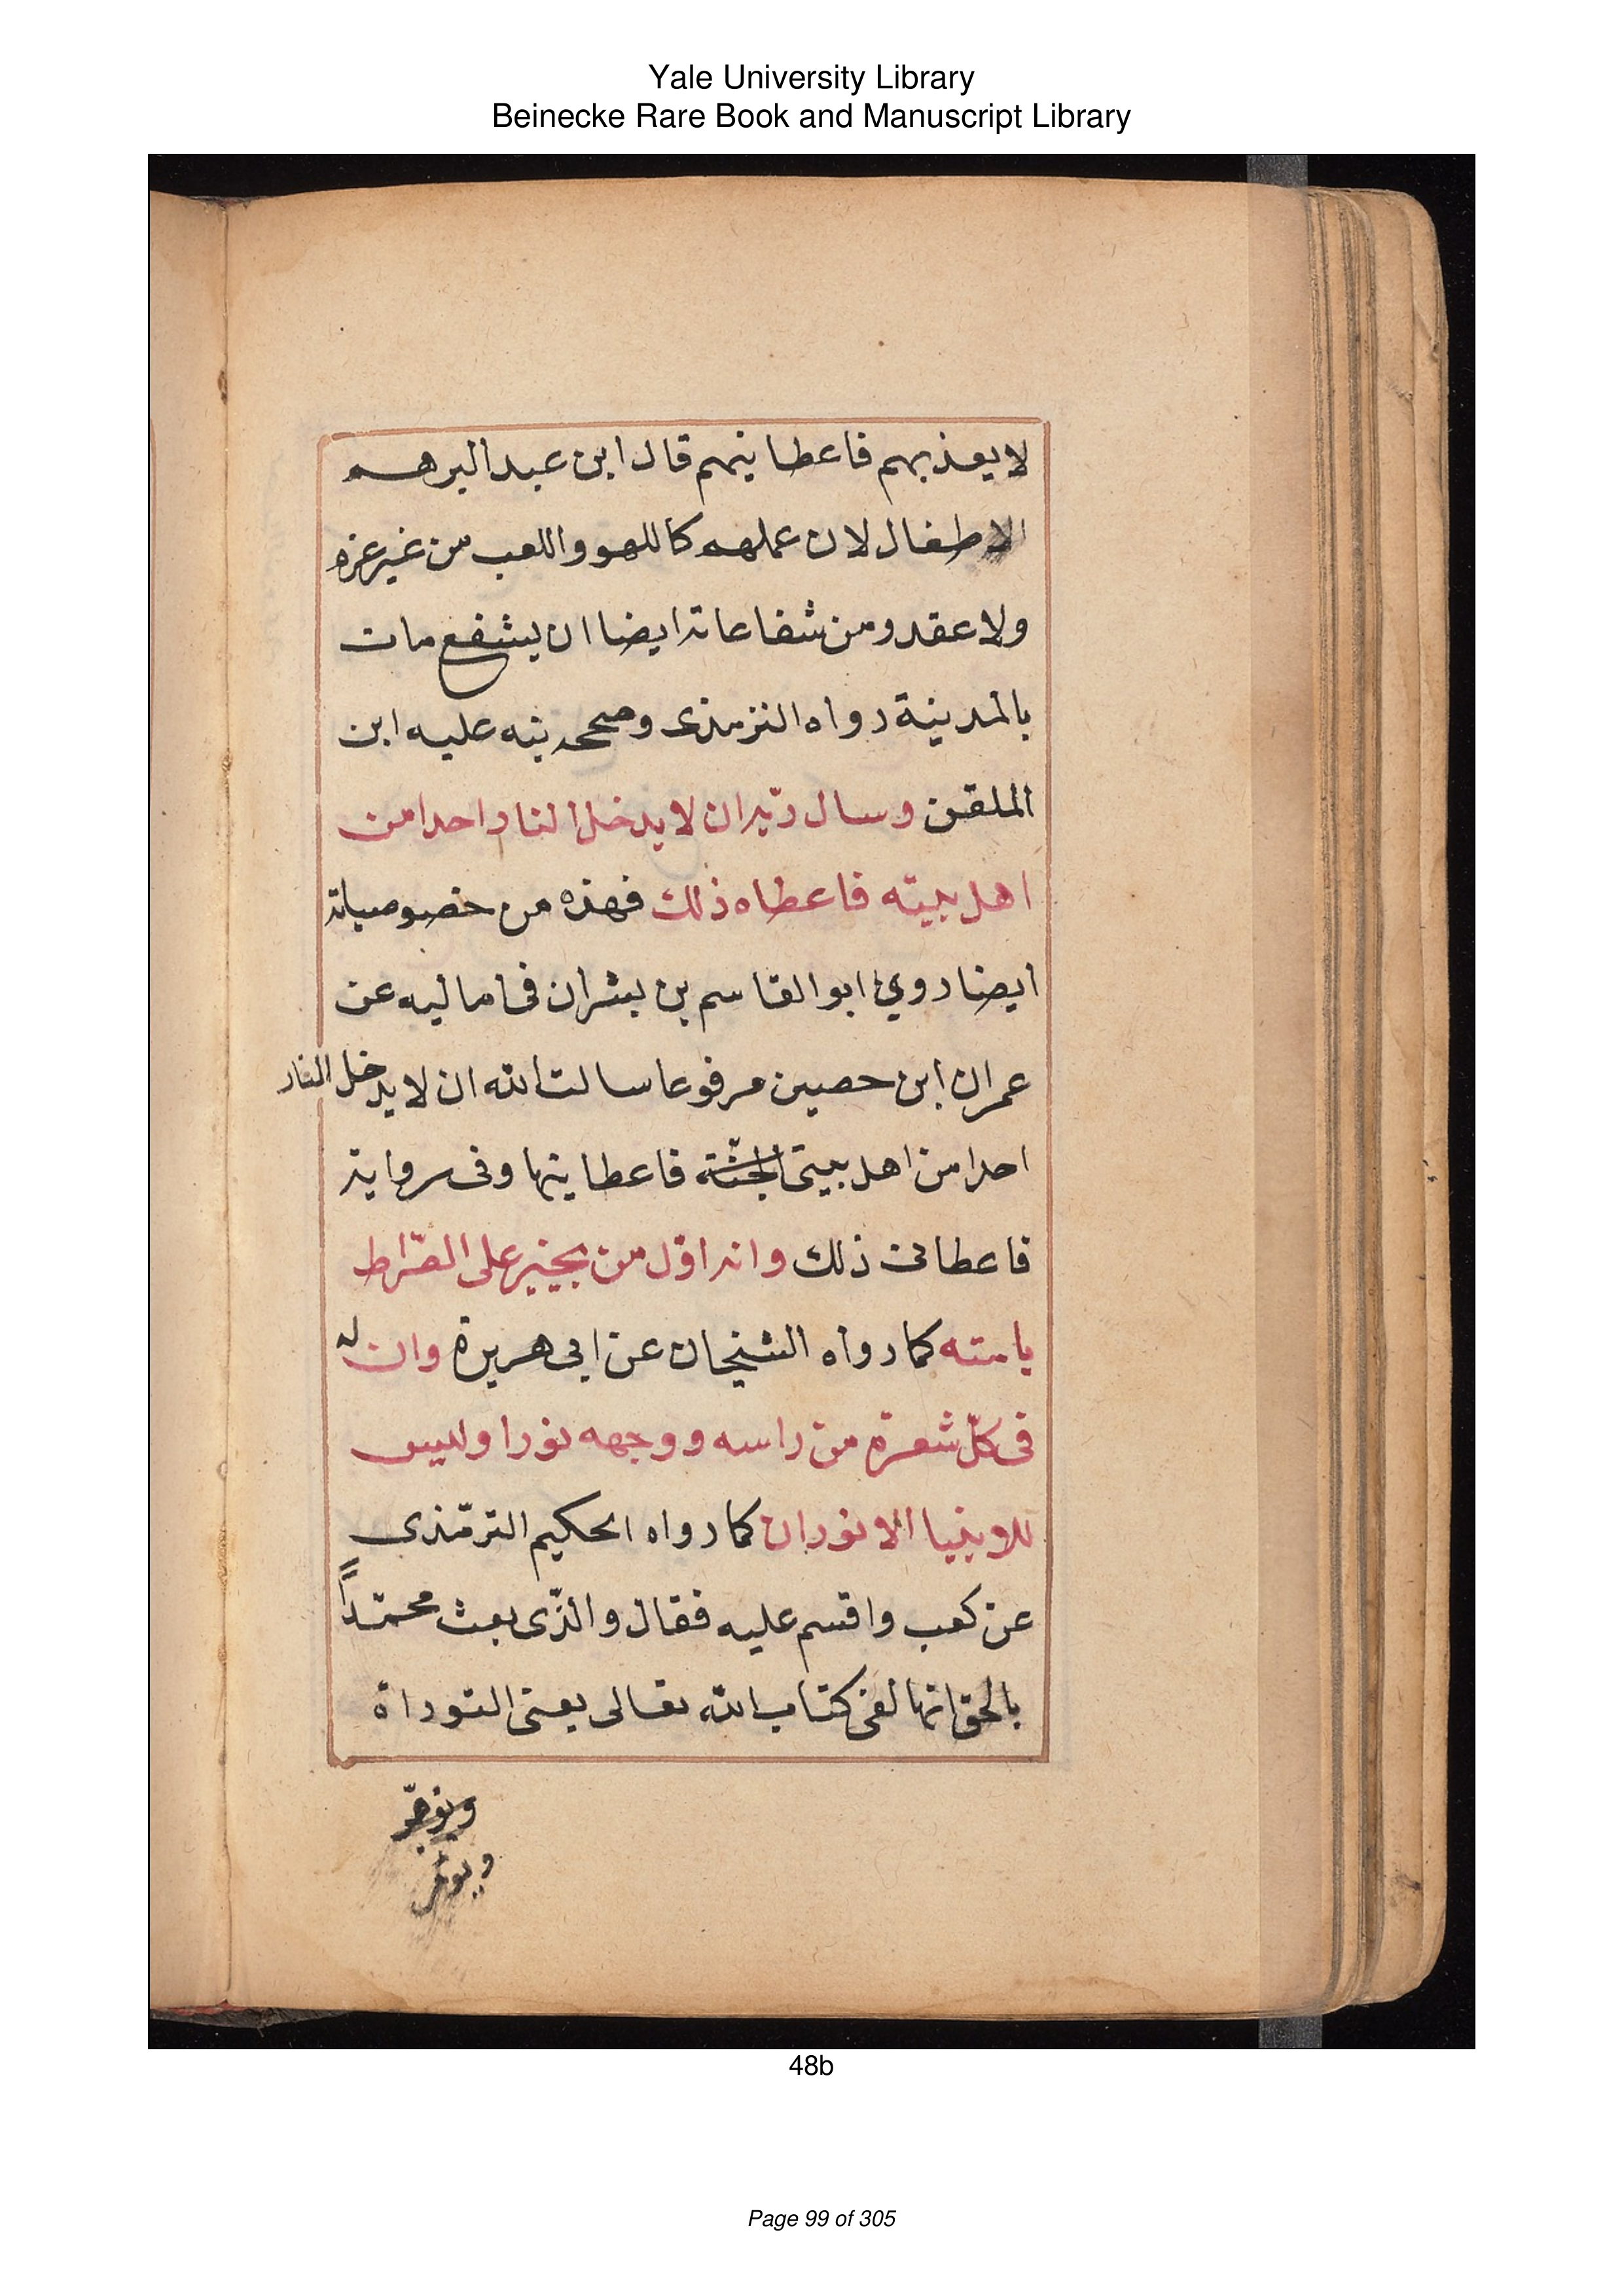 Yale University Library
Beinecke Rare Book and Manuscript Library
لا يعذبهم فاعطانيهم قال ابن عبد البر هم
الاطفال لان عملهم كاللهو واللعب من غير عزم
ولا عقد ومن شفاعاته ايضا ان يشفع مات
بالمدينة رواه الترمذى وصححه نبه عليه ابن
الملقن وسال ربّه ان لا يدخل النار احدا من
اهل بيته فاعطاه ذلك فهذه من خصوصياته
ايضا روي ابو القاسم بن بشران فى اماليه عن
عمران ابن حصين مرفوعا سالت الله ان لا يدخل النار
احدا من اهل بيتى الجنّة فاعطانيها وفى رواية
فاعطانى ذلك وانه اوّل من يجيز على الصّراط
بامته كما رواه الشيخان عن ابى هريرة وان له
فى كلّ شعرة من راسه ووجهه نورا وليس
للانبيا الا نوران كما رواه الحكيم الترمّذى
عن كعب واقسم عليه فقال والذّى بعث محمّداً
بالحق انها لفى كتاب الله تعالى يعنى التوراة
48b
Page 99 of 305